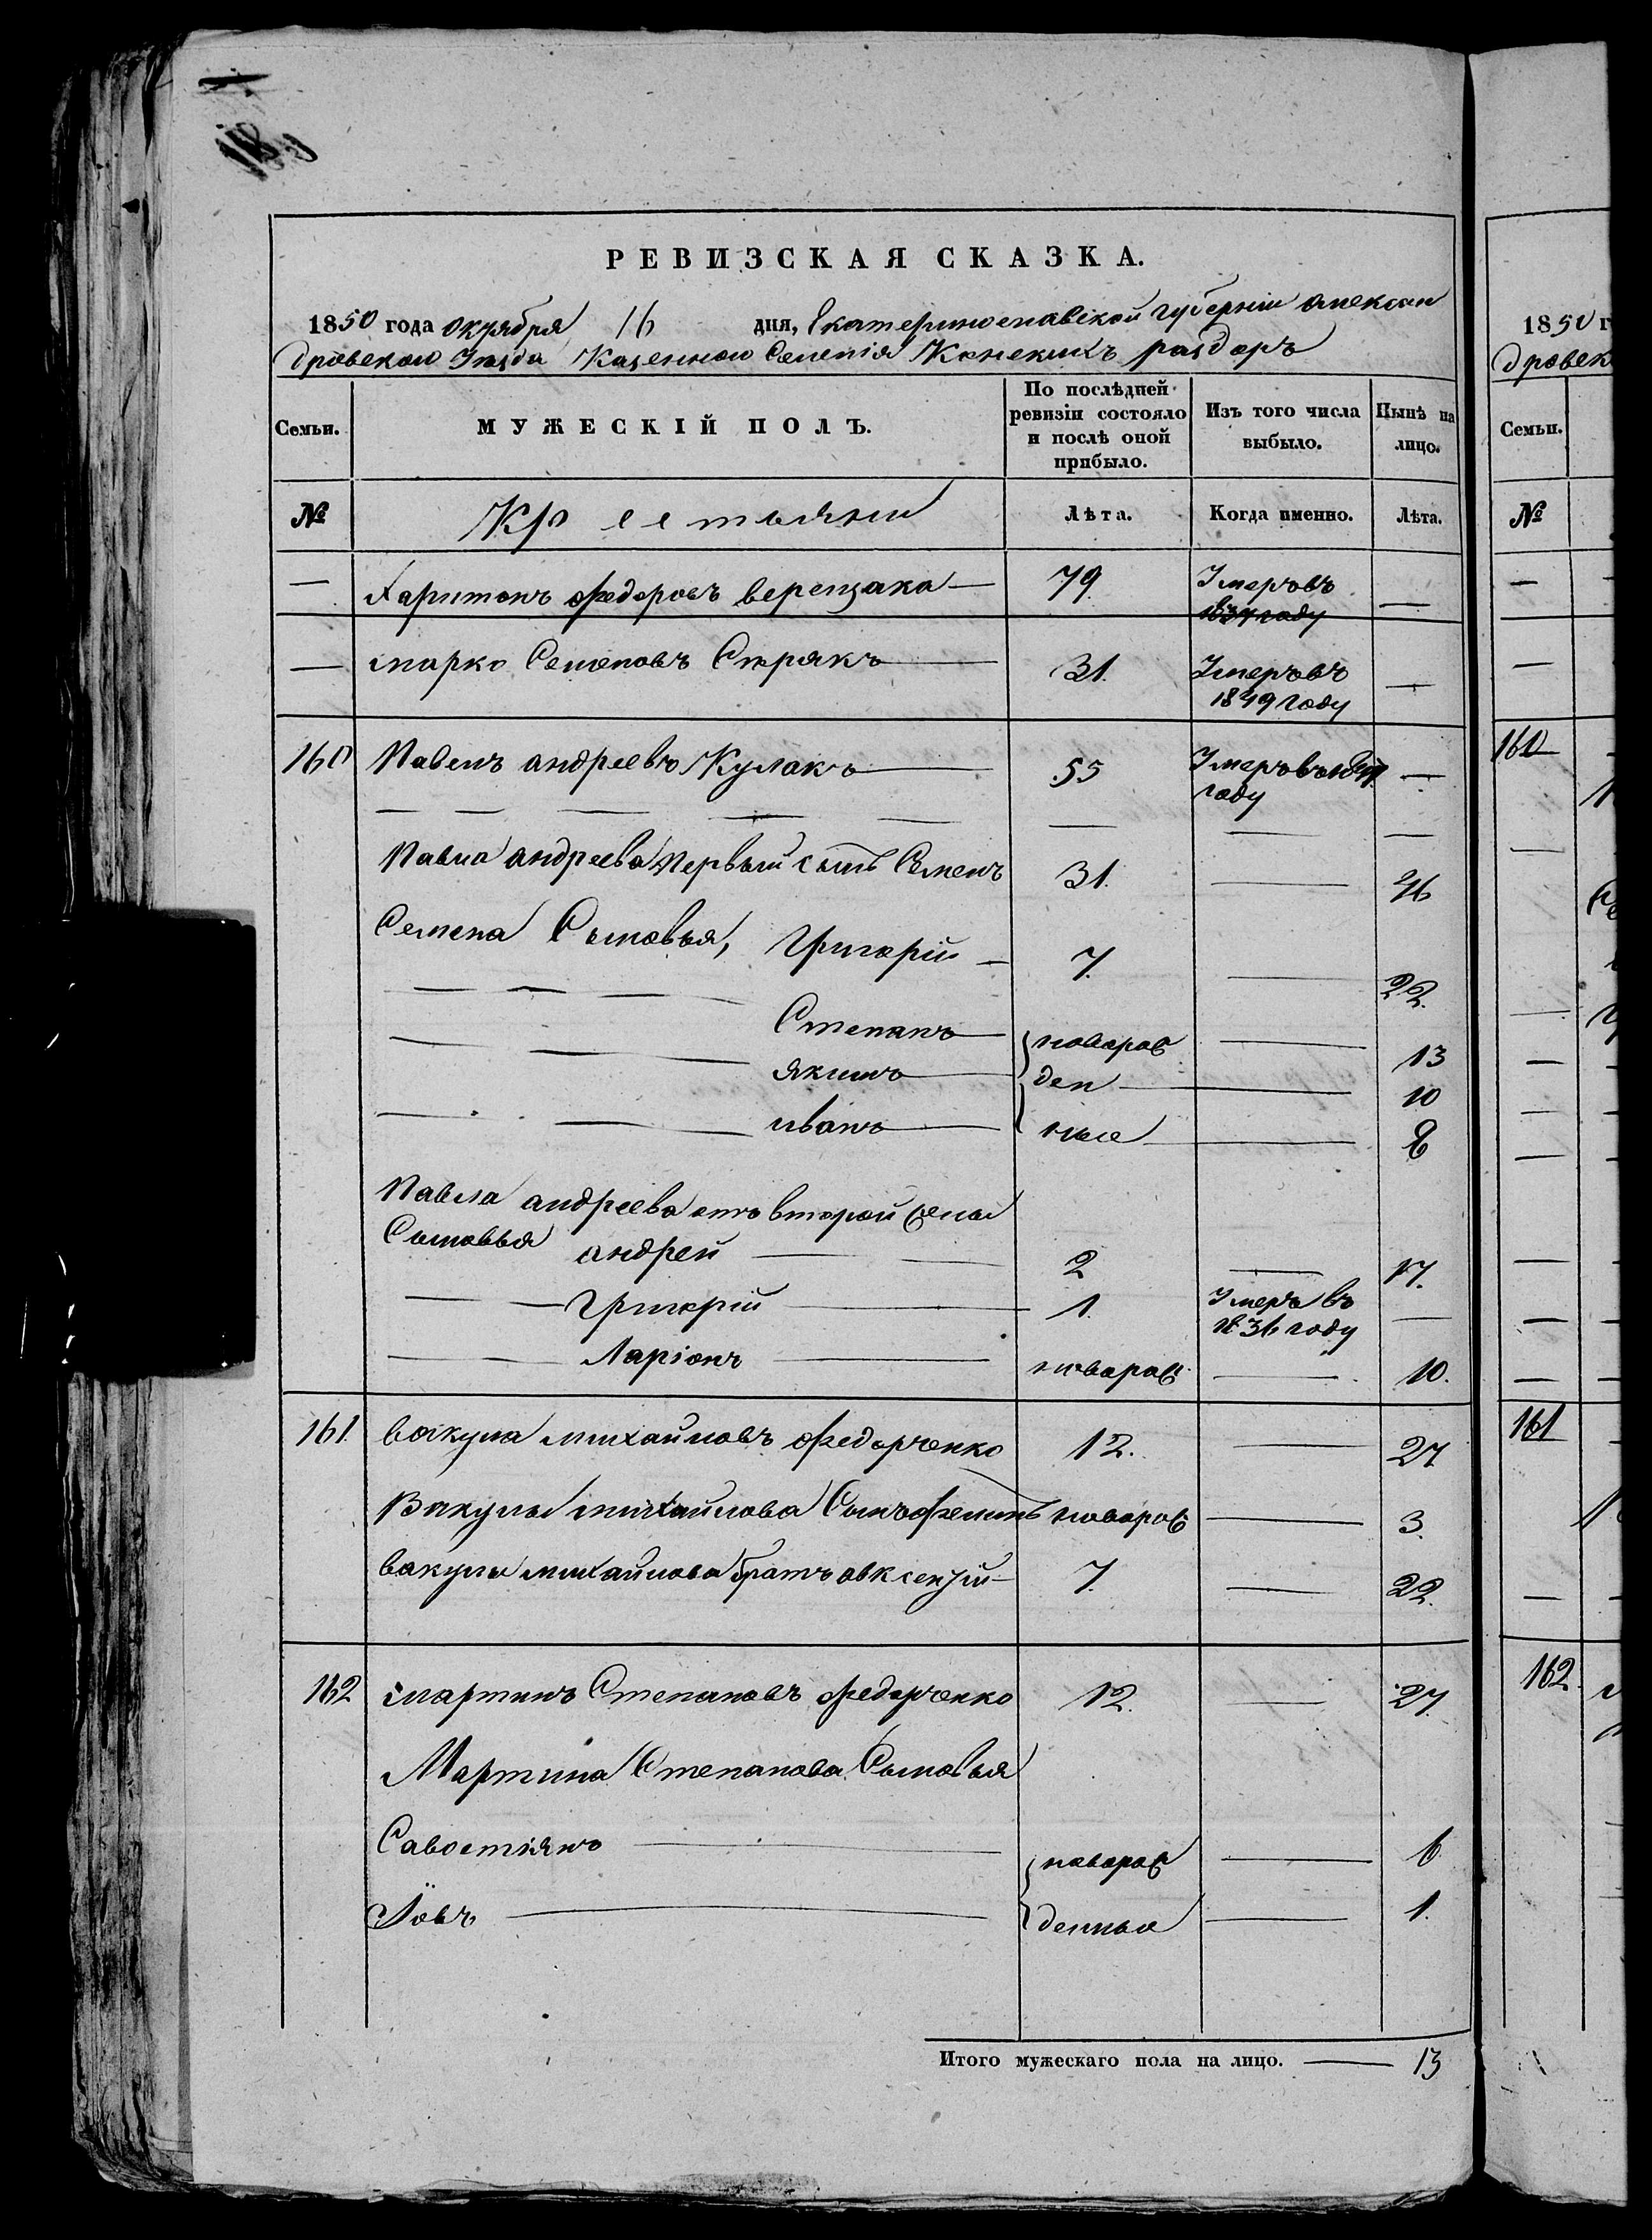 РЕВИЗСКАЯ СКАЗКА.
1850 года октября 16 дня, Екатеринославской губерніи Алексан
дровскаго Уезда Казеннаго Селенія Конскихъ раздоръ
Семьи. МУЖЕСКІЙ ПОЛЪ. По послѣдней ревизіи состояло и послѣ оной прибыло. Изъ того числа выбыло. Нынѣ на лицо.
№ Крестьяни Лѣта. Когда именно. Лѣта.
— Харитонъ Федоровъ Верещака — 79. Умеръ въ —
1837 году
— Марко Семеновъ Стрякъ — 31. Умеръ въ —
1849 году
160 Павелъ Андреевъ Кулакъ — 55 Умеръ въ —
году
Павла Андреева первый сынъ Семенъ 31. — 46
Семена Сыновья, Григорій — 7. — 22.
Степанъ — новорож — 13
Якимъ — ден — 10
Иванъ — ные — 8
Павла Андреева отъ второй жены
Сыновья Андрей — 2 — 17.
Григорій — 1. Умеръ въ —
1836 году
Ларіонъ — новорож. — 10.
161. Вакула Михайловъ Федорченко 12. — 27
Вакулы Михайлова Сынъ Филипъ новорож — 3.
Вакулы Михайлова братъ Авксентій — 7. — 22.
162 Мартинъ Степановъ Федорченко 12. — 27.
Мартина Степанова Сыновья
Савостіянъ — новорож — 6
Іовъ — денные — 1.
Итого мужескаго пола на лицо. — 13
1850 г
дровск
Семьи.
№
160
161
162.